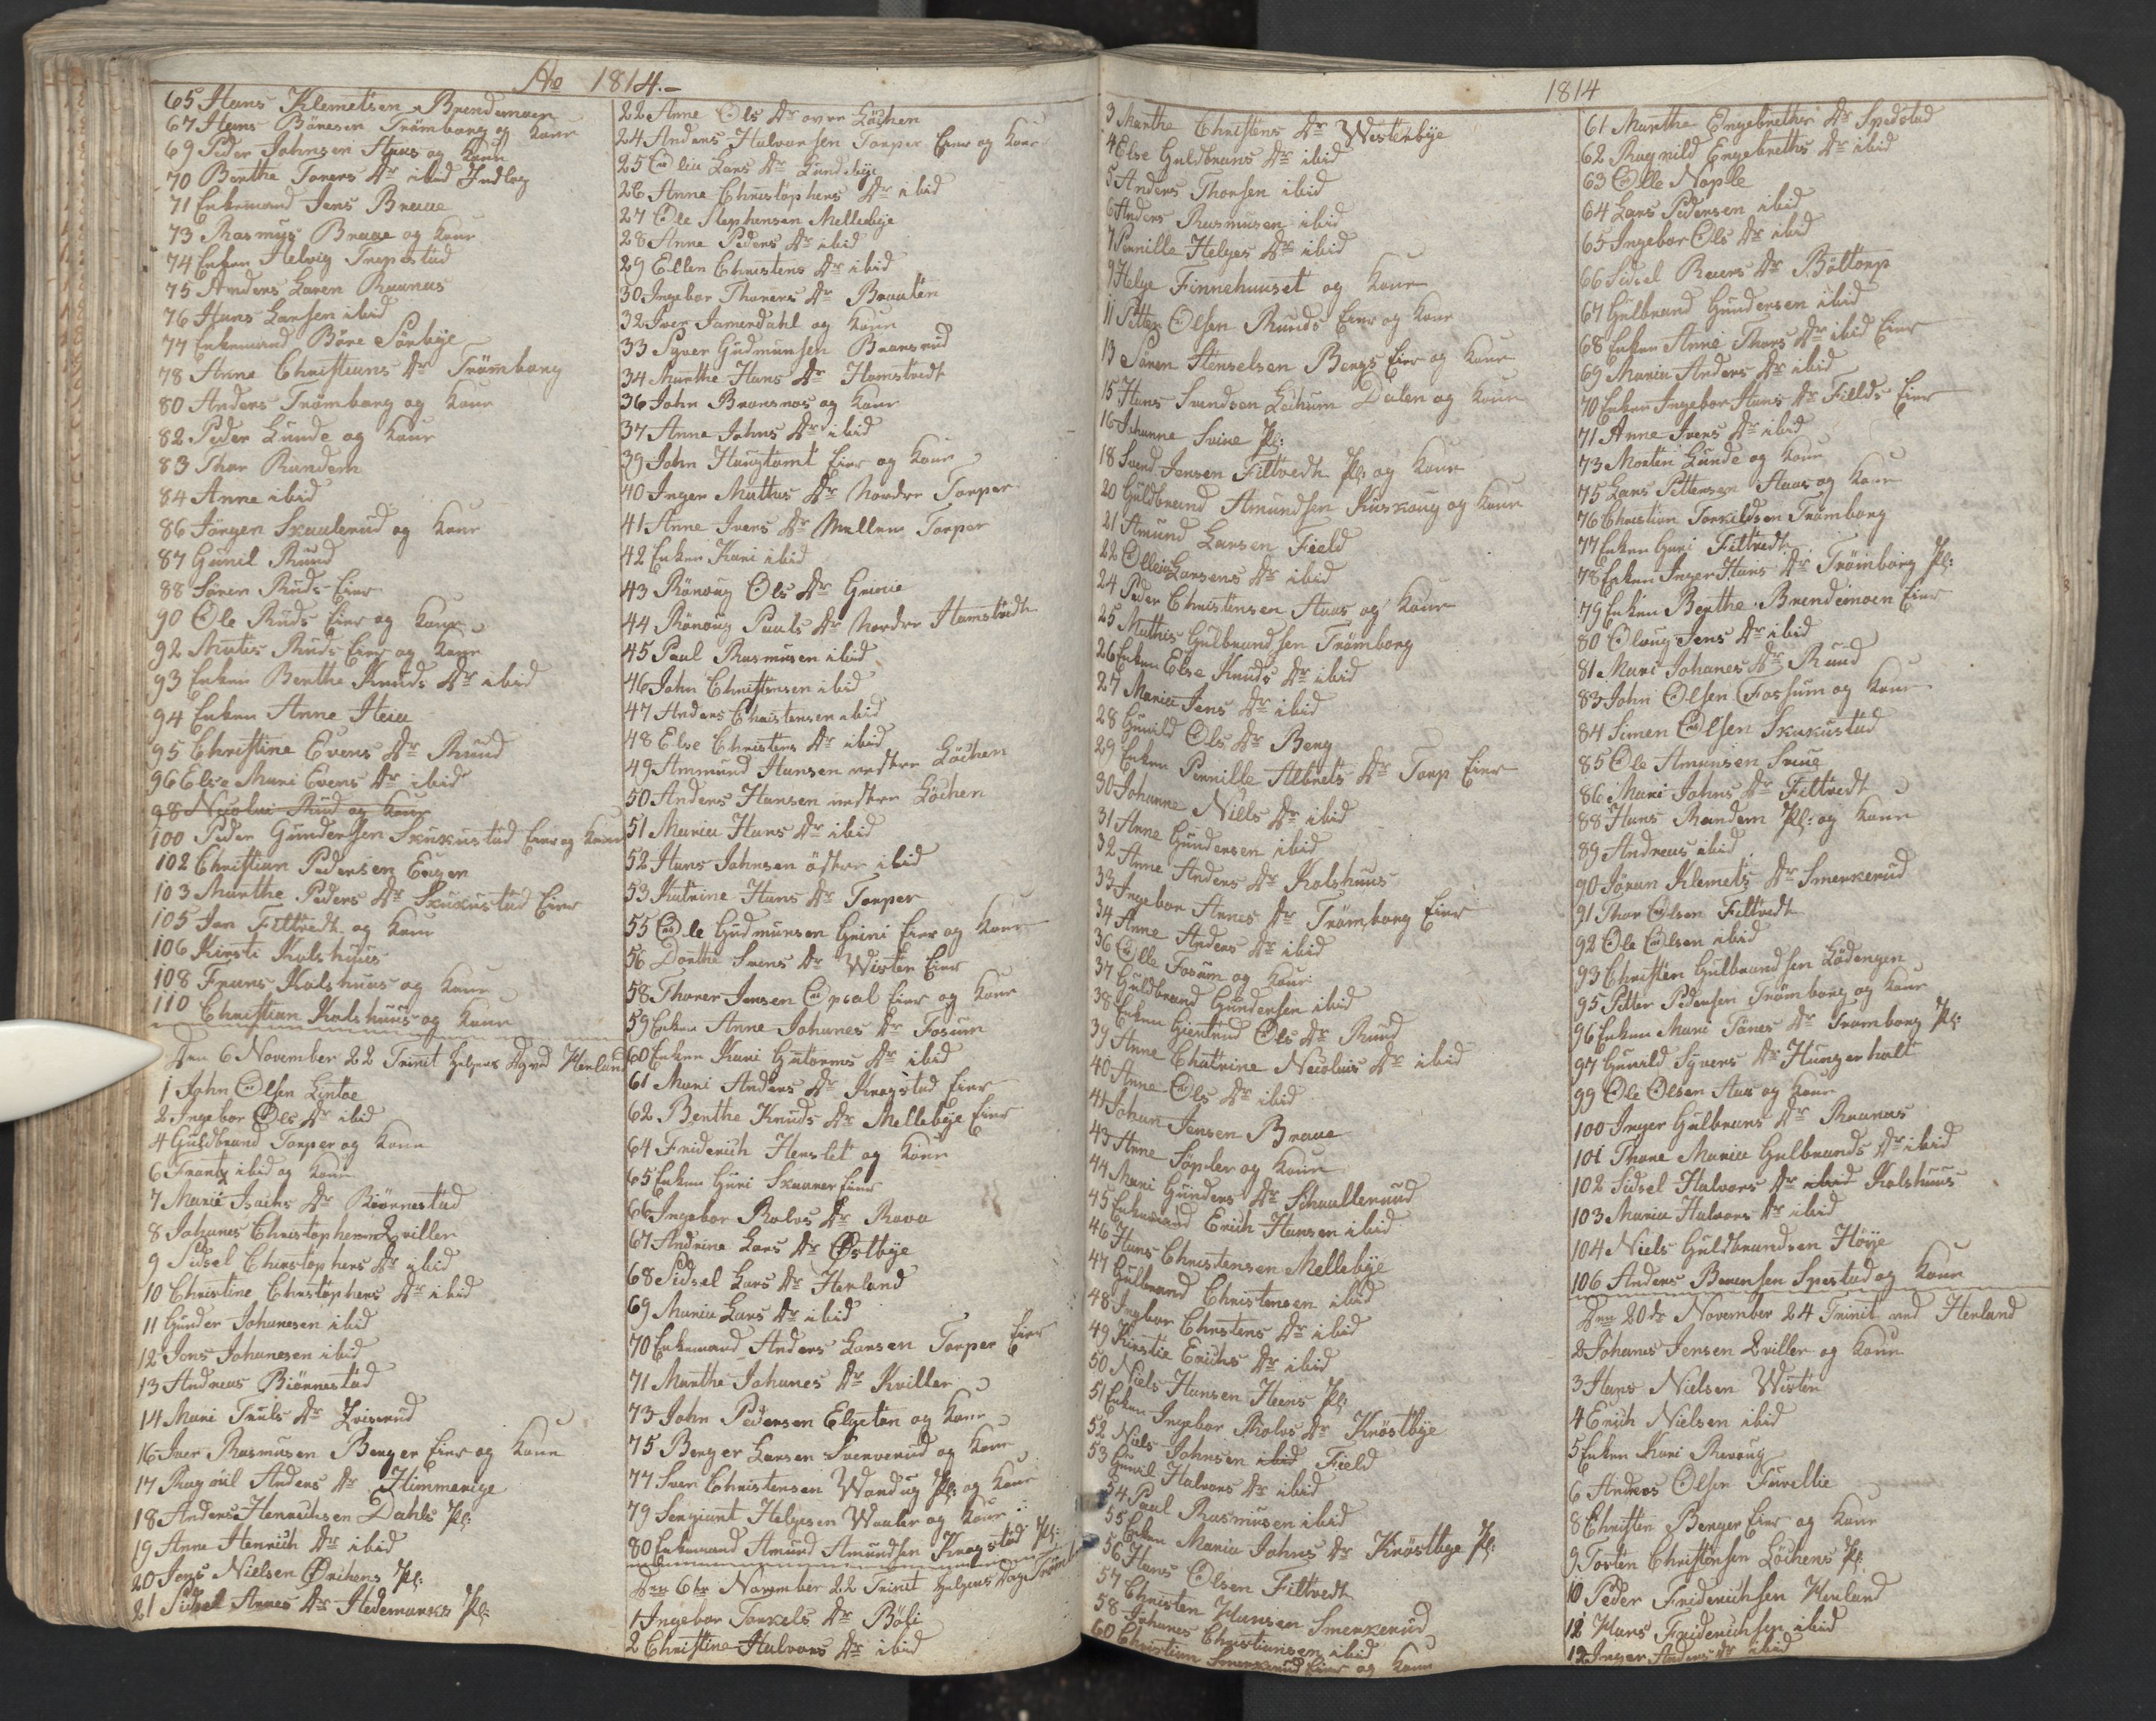 Ao 1814.-
65 Hans Klemetsen Brendemoen
67 Hans Börresen Trömborg og Kone
69 Peder Johnsen Haas og Kone
70 Berthe Torers Dr ibid Indlog
71 Enkemand Jens Braae
73 Rasmus Braae og Kone
74 Enken Helvig Trepstad
75 Anders Larsen Raanaas
76 Hans Larsen ibid
77 Enkemand Böre Sörbye
78 Anne Christians Dr Trömborg
80 Anders Trömborg og Kone
82 Peder Lunde og Kone
83 Thor Randem
84 Anne ibid
86 Jörgen Skaalerud og Kone
87 Gunil Ruud
88 Sören Ruds Eier
90 Ole Ruds Eier og Kone
92 Matis Ruds Eier og Kone
93 Enken Berthe Knuds Dr ibid
94 Enken Anne Heia
95 Christine Evens Dr Ruud
96 Else Mari Evens Dr ibid
98 Nicolai Rud og Kone
100 Peder Gundersen Skukustad Eier og Kone
102 Christian Pedersen Engen
103 Marthe Peders Dr Skukustad Eier
105 Jon Filtvedt og Kone
106 Kirsti Kolshuus
108 Frans Kolshuus og Kone
110 Christian Kolshuus og Kone
Den 6 November 22 Trinit Helgens Dag ved Herland
1 John Olsen Lintoe
2 Ingebor Ols Dr ibid
4 Guldbrand Torper og Kone
6 Frantz ibid og Kone
7 Marie Isachs Dr Biörnestad
8 Johanes Christophersen Qviller
9 Sidsel Christophers Dr ibid
10 Christine Christophers Dr ibid
11 Gunder Johanesen ibid
12 Jons Johanesen ibid
13 Andreas Biörnestad
14 Mari Truls Dr
16 Iver Rasmusen Berger Eier og Kone
17 Ragnil Anders Dr Himmerige
18 Anders Henrichsen Dahls Pl:
19 Anne Henrich Dr ibid
20 Jens Nielsen Pl:
21 Sidsel Arnes Dr Hedemarks Pl:
22 Anne Ols Dr ovre Löchen
24 Anders Halvorsen Torper Eier og Kone
25 Olia Lars Dr Lundebye
26 Anne Christophers Dr ibid
27 Ole Stephensen Mellebye
28 Anne Peders Dr ibid
29 Ellen Christens Dr ibid
30 Ingebor Thorers Dr Braaten
32 Iver Jamerdahl og Kone
33 Syver Gudmunsen Bransrud
34 Marthe Hans Dr Hamstvedt
36 John Bransnos og Kone
37 Anne Johns Dr ibid
39 John Haugtomt Eier og Kone
40 Inger Mattis Dr Nordre Torper
41 Anne Ivers Dr Mellem Torper
42 Enken Kari ibid
43 Rönoug Ols Dr Grinie
44 Rönoug Pauls Dr Nordre Hamstvedt
45 Paul Rasmusen ibid
46 John Christensen ibid
47 Anders Christensen ibid
48 Else Christens Dr ibid
49 Ammund Hansen vestre Löchen
50 Anders Hansen nedtre Löchen
51 Maria Hans Dr ibid
52 Hans Johnsen östre ibid
53 Katrine Hans Dr Torper
55 Ole Gudmunsen Grini Eier og Kone
56 Dorthe Svens Dr Wister Eier
58 Thorer Jensen Opsal Eier og Kone
59 Enken Anne Johanes Dr Fosum
60 Enken Kari Gutorms Dr ibid
61 Mari Anders Dr Kragstad Eier
62 Berthe Knuds Dr Mellebye Eier
64 Friderich Herslet og Kone
65 Enken Guri Skaarer Eier
66 Ingebor Rolvs Dr Rova
67 Andrine Lars Dr Østbye
68 Sidsel Lars Dr Herland
69 Maria Lars Dr ibid
70 Enkemand Anders Larsen Torper Eier
71 Marthe Johanes Dr Kviller
73 John Pedersen Elgeton og Kone
75 Berger Larsen Sververud og Kone
77 Sven Christensen Wandug Pl: og Kone
79 Sergiant Helgesen Waaler og Kone
80 Enkemand Amund Amundsen Kragstad Pl:
Den 6te November 22 Trinit Helgens Dag
1 Ingebor Torkels Dr Böli
2 Christine Halvors Dr ibid
1814
3 Marthe Christens Dr Westerbye
4 Else Guldbrans Dr ibid
5 Anders Thorsen ibid
6 Anders Rasmusen ibid
7 Pernille Helges Dr ibid
9 Helge Finnehuuset og Kone
11 Petter Olsen Ruuds Eier og Kone
13 Sören Stenselsen Bergs Eier og Kone
15 Hans Svendsen Lechum Dalen og Kone
16 Johanne Svine Pl:
18 Svend Jensen Filtvedt Pl: og Kone
20 Guldbrand Amundsen Kuskoug og Kone
21 Amund Larsen Field
22 Ollea Larsens Dr ibid
24 Peder Christensen Aaas og Kone
25 Mathis Gulbrandsen Trömborg
26 Enken Else Knuds Dr ibid
27 Maria Jens Dr ibid
28 Gunild Ols Dr Berg
29 Enken Pernille Albrets Dr Torp Eier
30 Johanne Niels Dr ibid
31 Anne Gundersen ibid
32 Anne Anders Dr Kolshuus
33 Ingebor Arnes Dr Trömborg Eier
34 Anne Anders Dr ibid
36 Olle Fosum og Kone
37 Guldbrand Gundersen ibid
38 Enken Giertrud Ols Dr Ruud
39 Anne Chatrine Nicolais Dr ibid
40 Anne Ols Dr ibid
41 Johan Jensen Braae
43 Arne Söpler og Kone
44 Mari Gunders Dr Schaullerud
45 Enkemand Erich Hansen ibid
46 Hans Christensen Mellebye
47 Gulbrand Christensen ibid
48 Ingebor Christens Dr ibid
49 Kirstie Erichs Dr ibid
50 Niels Hansen Heens Pl:
51 Enken Ingebor Rolvs Dr Knöstbye
52 Niels Johnsen ibid Field
53 Gunil Halvors Dr ibid
54 Paul Rasmusen ibid
55 Enken Maria Johns Dr Knöstbye Pl:
56 Hans Olsen Filtvedt
57 Christen Hansen Smerkerud
58 Johanes Christiansen ibid
60 Christian Smerkerud Eier og Kone
61 Marthe Engebrethes Dr Spedstad
62 Ragnild Engebreths Dr ibid
63 Olle Nople
64 Lars Pedersen ibid
65 Ingebor Ols Dr ibid
66 Sidsel Reers Dr Böttorp
67 Gulbrand Gundersen ibid
68 Enken Anne Thors Dr ibid Eier
69 Maria Anders Dr ibid
70 Enken Ingebor Hans Dr Fields Eier
71 Anne Ivers Dr ibid
73 Morten Lunde og Kone
75 Lars Pettersen Aaas og Kone
76 Christian Torkildsen Trömborg
77 Enken Guri Filtvedt
78 Enken Inger Hans Dr Trömborg Pl:
79 Enken Berthe Brendemoen Eier
80 Oloug Jens Dr ibid
81 Mari Johanes Dr Ruud
83 John Olsen Fossum og Kone
84 Simen Olsen Skukustad
85 Ole Amunsen Svine
86 Mari Johns Dr Filtvedt
88 Hans Randem Pl: og Kone
89 Andreas ibid
90 Jöran Klemets Dr Smerkerud
91 Thor Olsen Filtvedt
92 Ole Olsen ibid
93 Christen Gulbrandsen Lödengen
95 Petter Pedersen Trömborg og Kone
96 Enken Mari Tönes Dr Tromborg Pl:
97 Gunild Syvers Dr Hungerholt
99 Ole Olsen Aas og Kone
100 Inger Gulbrans Dr Raanaas
101 Thore Maria Gulbrands Dr ibid
102 Sidsel Halvors Dr ibid Kolshuus
103 Maria Halvors Dr ibid
104 Niels Guldbrandsen Höye
106 Anders Berensen Spestad og Kone
Den 20de November 24 Trinit ved Herland
2 Johanes Jensen Qviller og Kone
3 Hans Nielsen Wister
4 Erich Nielsen ibid
5 Enken Kari Revoug
6 Andreas Olsen Turellie
8 Christen Berger Eier og Kone
9 Torsten Christensen Löchens Pl:
10 Peder Friderichsen Herland
12 Hans Friderichsen ibid
12 Inger Anders Dr ibid